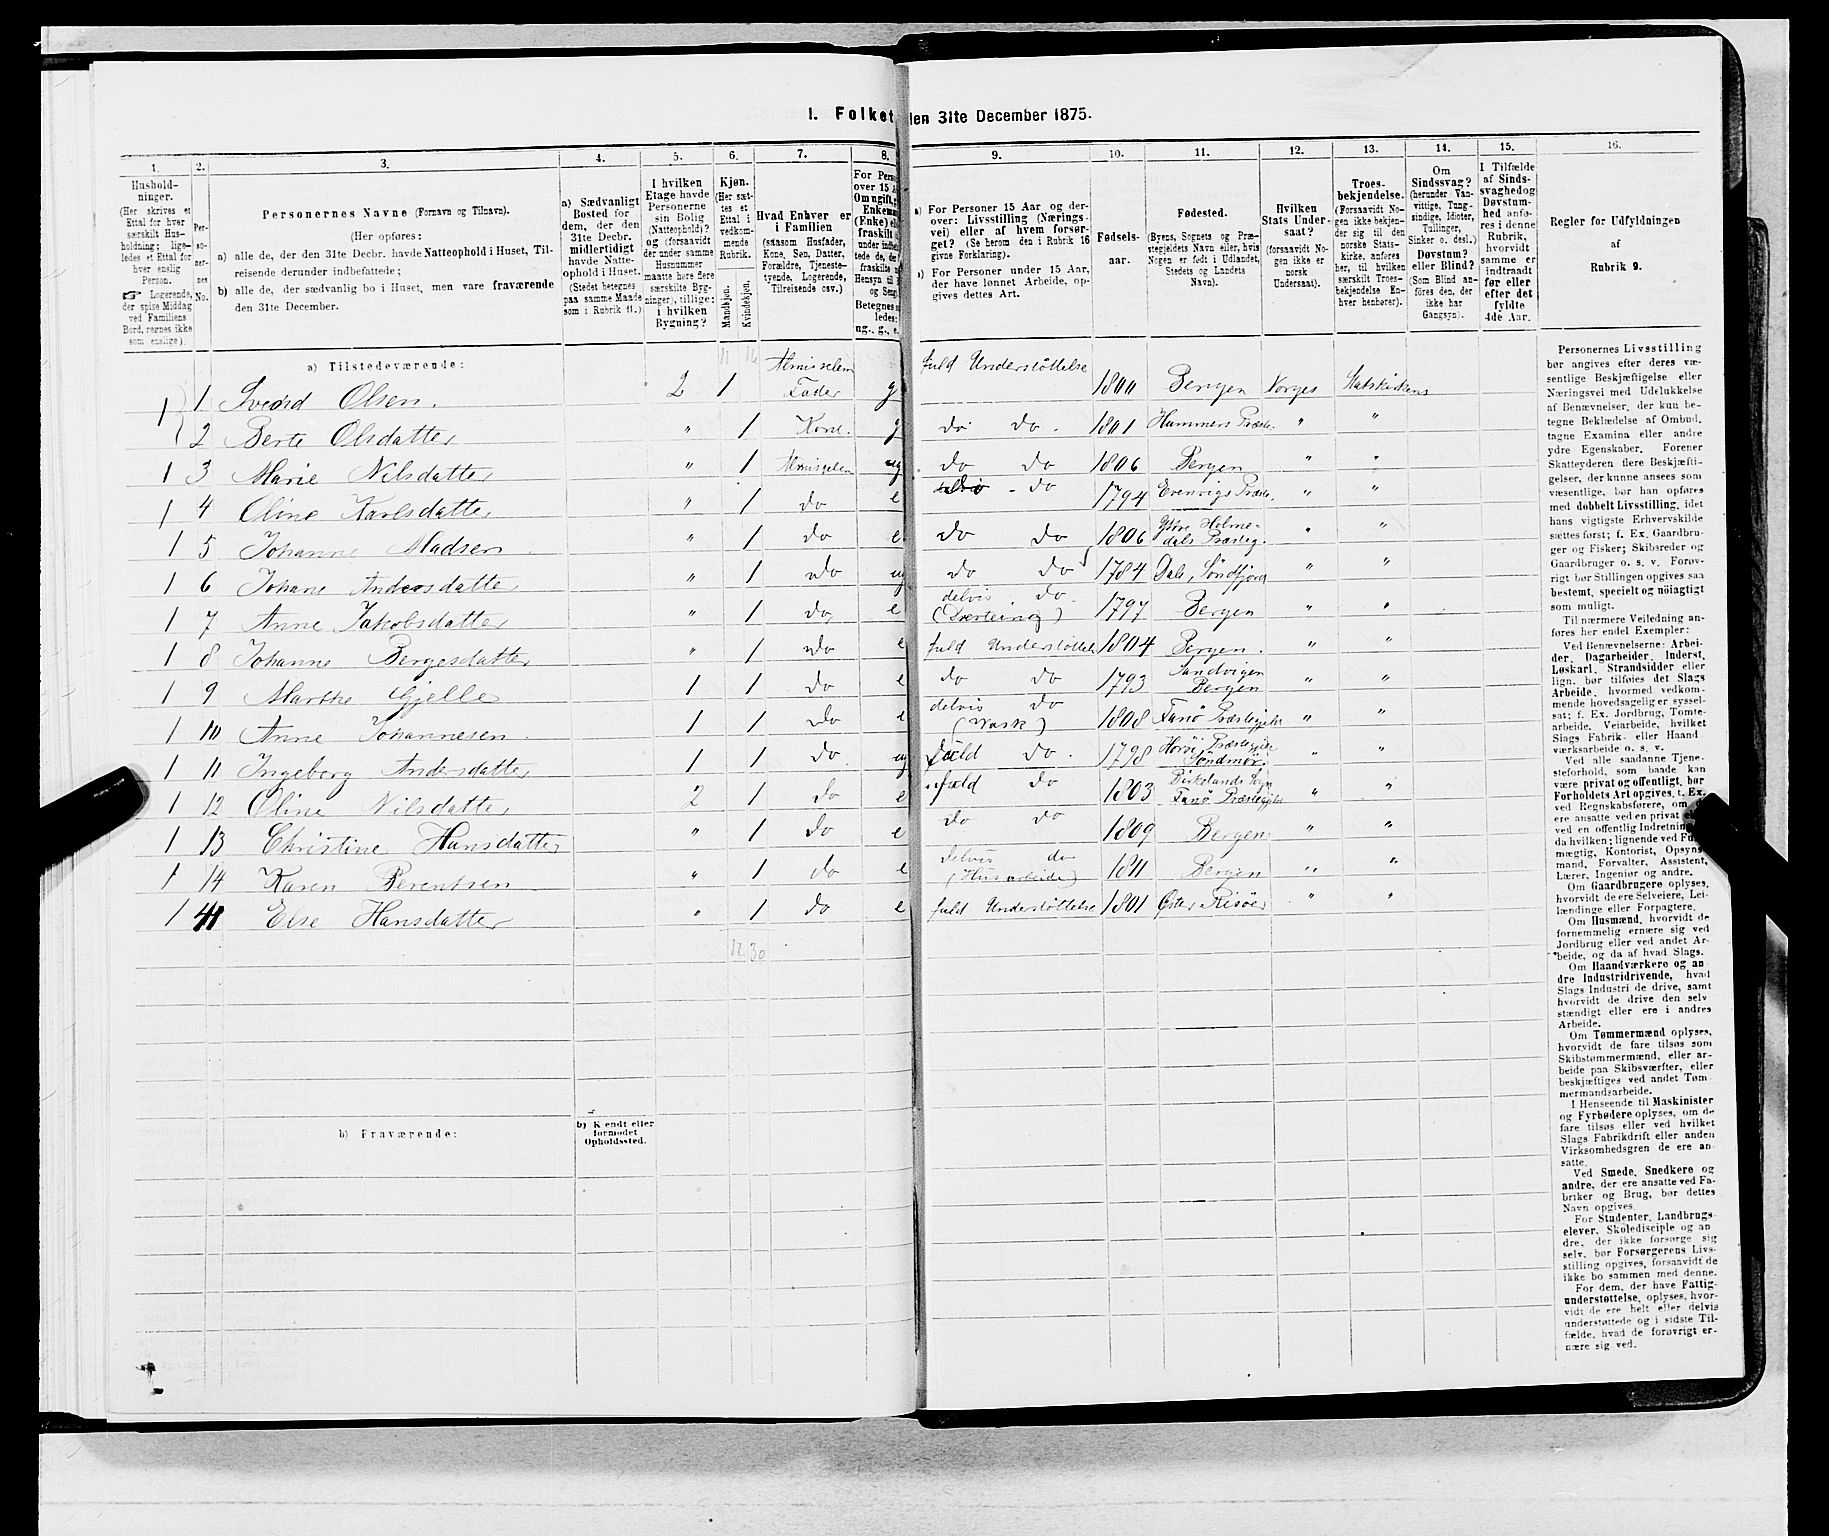 I. Folket
den 31te December 1875.
1. 2. 3. 4. 5. 6. 7. 8. 9. 10. 11. 12. 13. 14. 15. 16.
Hushold-
ninger.
(Her skrives et
Ettal for hver
særskilt Hus-
holdning; lige-
ledes et Ettal for
hver enslig
Person.
☞ Logerende,
der spise Middag
ved Familiens
Bord, regnes ikke
som enslige).
Per-
so-
ner-
nes
No.
Personernes Navne (Fornavn og Tilnavn).
(Her opføres:
a) alle de, der den 31te Decbr. havde Natteophold i Huset, Til-
reisende derunder indbefattede;
b) alle de, der sædvanlig bo i Huset, men vare fraværende
den 31te December.
a) Sædvanligt
Bosted for
dem, der den
31te Decbr.
midlertidigt
havde Natte-
ophold i Huset.
(Stedet betegnes
paa samme Maade
som i Rubrik 11.)
I hvilken
Etage havde
Personerne
sin Bolig
(Natteophold)?
og (forsaavidt
der under samme
Husnummer
maatte høre flere
særskilte Byg-
ninger), tillige:
i hvilken
Bygning?
Kjøn.
(Her sæt-
tes et
Ettal i
vedkom-
mende
Rubrik.
Mandkjøn.
Kvindekjøn.
Hvad Enhver er
i Familien
(saasom Husfader,
Kone, Søn, Datter,
Forældre, Tjeneste-
tyende, Logerende,
Tilreisende osv.)
For Pers
over 15 A
Om ugift,
Enkem
(Enke) el
fraskilt
under indbe
tede de, de
fraskilte
Hensyn til
og Seng
Betegnes
ledes:
ug., g., e.
a) For Personer 15 Aar og der-
over: Livsstilling (Nærings-
vei) eller af hvem forsør-
get? (Se herom den i Rubrik 16
givne Forklaring).
b) For Personer under 15 Aar,
der have lønnet Arbeide, op-
gives dettes Art.
Fødsels-
aar.
Fødested.
(Byens, Sognets og Præ-
stegjeldets Navn eller, hvis
Nogen er født i Udlandet,
Stedets og Landets
Navn).
Hvilken
Stats Under-
saat?
(forsaavidt No-
gen ikke er
norsk
Undersaat).
Troes-
bekjendelse.
(Forsaavidt No-
gen ikke bekjen-
der sig til den
norske Stats-
kirke, anføres
her, til hvilken
særskilt Troes-
bekjendelse En-
hver henhører).
Om
Sindssvag?
(herunder Van-
vittige, Tung-
sindige, Idioter,
Tullinger,
Sinker o. desl.)
Døvstum?
eller Blind?
(Som Blind an-
føres den, der
ikke har
Gangsyn).
I Tilfælde
af Sinds-
svaghed og
Døvstum-
hed anfø-
res i denne
Rubrik,
hvorvidt
samme er
indtraadt
før eller
efter det
fyldte
4de Aar.
Regler for Udfyldningen
af
Rubrik 9.
a) Tilstedeværende: 11 16
1 1 Sverd Olsen. 2 1 Almisselem Fader g fuld Understøttelse 1800 Bergen Norges Statskirkens
2 Berte Olsdatter " 1 Kone. g do do. 1801 Hammers Præste. " "
1 3 Marie Nilsdatter " 1 Almisselem ug do do 1806 Bergen " "
1 4 Oline Karlsdatter " 1 do e do - do 1794 Evenvigs Præste. " "
1 5 Johanne Madsen " 1 do e do do 1806 Ydre Holme-dals Præsteg. " "
1 6 Johane Andersdatter " 1 do ug do do 1784 Dale, Søndfjord " "
1 7 Anne Jakobsdatter " 1 do e delvis do. 1797 Bergen " "
1 8 Johanne Bergesdatter " 1 do e fuld Understøttelse 1804 Bergen. " "
1 9 Marthe Gjelle 1 1 do e do do 1793 Sandvigen Bergen " "
1 10 Anne Johannesen. 1 1 do e delvis do (Vask) 1808 Fanø Præstegjeld " "
1 11 Ingeborg Andersdatter 1 1 do. ug fuld do. 1798 Præstegjeld Søndmør. " "
1 12 Oline Nilsdatter 2 1 do e fuld do 1803 Birkelands Sogn Fanø Præstegjeld " "
1 13 Christine Hansdatter " 1 do e do do 1809 Bergen " "
1 14 Karen Berentsen " 1 do e delvis do (Husarbeide) 1811 Bergen " "
1 41 Else Hansdatter " 1 do e fuld Understøttelse 1801 Øster Risøer " "
12 30
b) Fraværende:
b) Kjendt eller
formodet
Opholdssted.
Personernes Livsstilling
bør angives efter deres væ-
sentlige Beskjæftigelse eller
Næringsvei med Udelukkelse
af Benævnelser, der kun be-
tegne Beklædelse af Ombud,
tagne Examina eller andre
ydre Egenskaber. Forener
Skatteyderen flere Beskjæfti-
gelser, der kunne ansees som
væsentlige, bør han opføres
med dobbelt Livsstilling, idet
hans vigtigste Erhvervskilde
sættes først; f. Ex. Gaardbru-
ger og Fisker; Skibsreder og
Gaardbruger o. s. v. Forøv-
rigt bør Stillingen opgives saa
bestemt, specielt og nöiagtigt
som muligt.
Til nærmere Veiledning an-
føres her endel Exempler:
Ved Benævnelserne: Arbei-
der, Dagarbeider, Inderst,
Løskarl, Strandsidder eller
lign. bør tilføies det Slags
Arbeide, hvormed vedkom-
mende hovedsagelig er syssel-
sat; f. Ex. Jordbrug, Tomte-
arbeide, Veiarbeide, hvilket
Slags Fabrik- eller Haand-
værksarbeide o. s. v.
Ved alle saadanne Tjene-
steforhold, som baade kan
være privat og offentligt, bør
Forholdets Art opgives, t. Ex.
ved Regnskabsførere, om de
ere ansatte ved en privat
ved en offentlig Indretning
da hvilken; lignende ved Fuld-
mægtig, Kontorist, Opsyns-
mand, Forvalter, Assistent,
Lærer, Ingeniør og andre.
Om Gaardbrugere oplyses,
hvorvidt de ere Selveiere, Lei-
lændinge eller Forpagtere.
Om Husmænd, hvorvidt de
fornemmelig ernære sig ved
Jordbrug eller ved andet Ar-
beide, og da af hvad Slags.
Om Haandværkere og an-
dre Industridrivende, hvad
Slags Industri de drive, samt
hvorvidt de drive den selv-
stændigt eller ere i andres
Arbeide.
Om Tømmermænd oplyses,
hvorvidt de fare tilsøs som
Skibstømmermænd, eller ar-
beide paa Skibsværfter, eller
beskjæftiges ved andet Tøm-
mermandsarbeide.
I Henseende til Maskinister
og Fyrbødere oplyses, om de
fare tilsøs eller ved hvilket
Slags Fabrikdrift eller anden
Virksomhedsgren de ere an-
satte.
Ved Smede, Snedkere og
andre, der ere ansatte ved Fa-
briker og Brug, bør dettes
Navn opgives.
For Studenter, Landbrugs-
elever, Skoledisciple og an-
dre, der ikke forsørge sig
selv, bør Forsørgerens Livs-
stilling opgives, forsaavidt de
ikke bo sammen med denne.
For dem, der have Fattig-
understøttelse, oplyses, hvor-
vidt de ere helt eller delvis
understøttede og i sidste Til-
fælde, hvad de forøvrigt er-
nære sig ved.